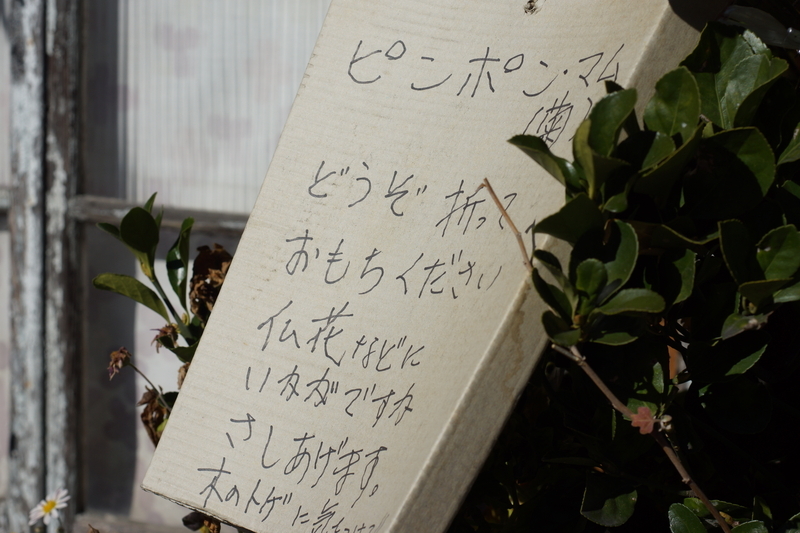 ピンポン・マム
(菊)
どうぞ 折って
おもちください
仏花などに
いかがですか
さしあげます。
木のトゲに気をつけて